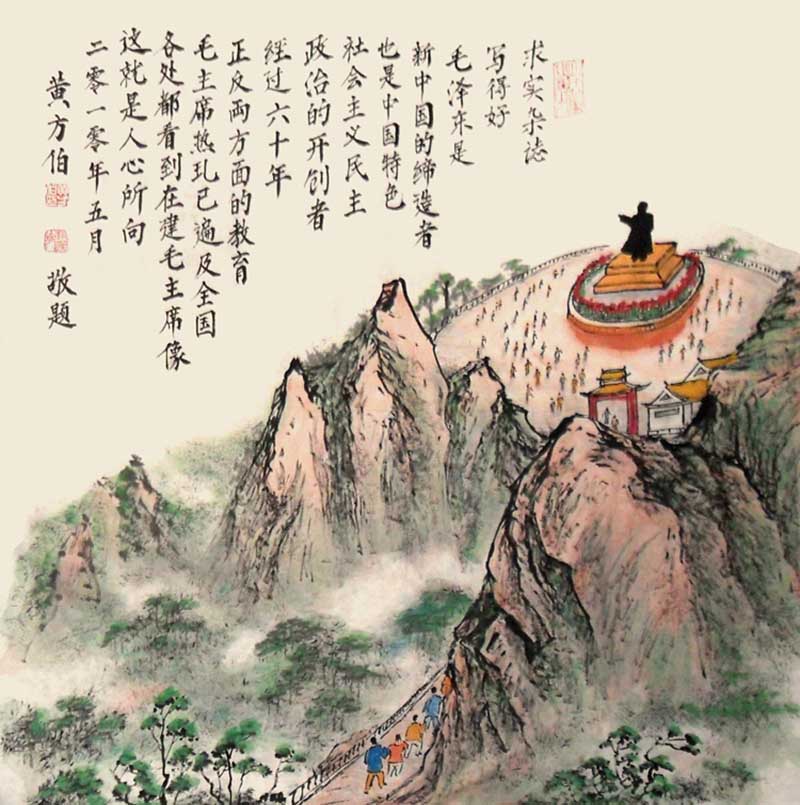 求实杂志
写得好
毛泽东是
新中国的缔造者
也是中国特色
社会主义民主
政治的开创者
经过六十年
正反两方面的教育
毛主席热已遍及全国
各处都看到在建毛主席像
这就是人心所向
二零一零年五月
黄方伯
敬题